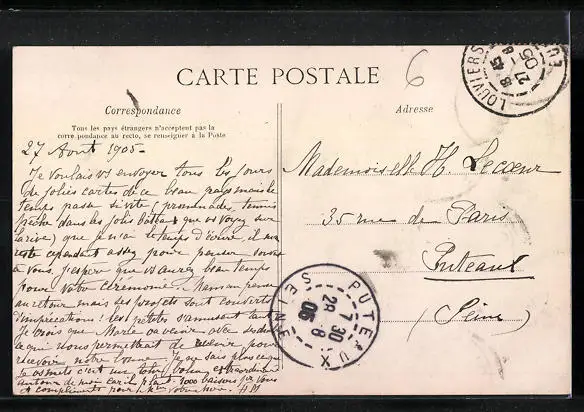 CARTE POSTALE
6
LOUVIERS EURE
8 45
27 - 8
05
Correspondance
Adresse
Tous les pays étrangers n'acceptent pas la
correspondance au recto, se renseigner à la Poste
27 Août 1905
Je voulais vs envoyer tous les jours
de jolies cartes de ce beau pays mais le
temps passe si vite (promenades, tennis
pêche dans les jolis que vs voyez sur
la rive) que je n'ai le temps d'écrire, il me
reste cependant assez pour penser
à vous. J'espère que vs aurez beau temps
pour votre cérémonie. Maman pense
au retour mais ses projets sont couverts
d'imprécations! les petits s'amusent tant
Je crois que Marie va venir avec
ce qui nous permettrait de pour
recevoir notre Je ne sais plus ce que
je vs mets c'est un bruit extraordinaire
autour de moi car il pleut. 1000 baisers pr vous
et compliments pour HM
Mademoiselle H. Lecoeur
35 rue de Paris
Puteaux
(Seine)
PUTEAUX SEINE
7 30
28 - 8
05